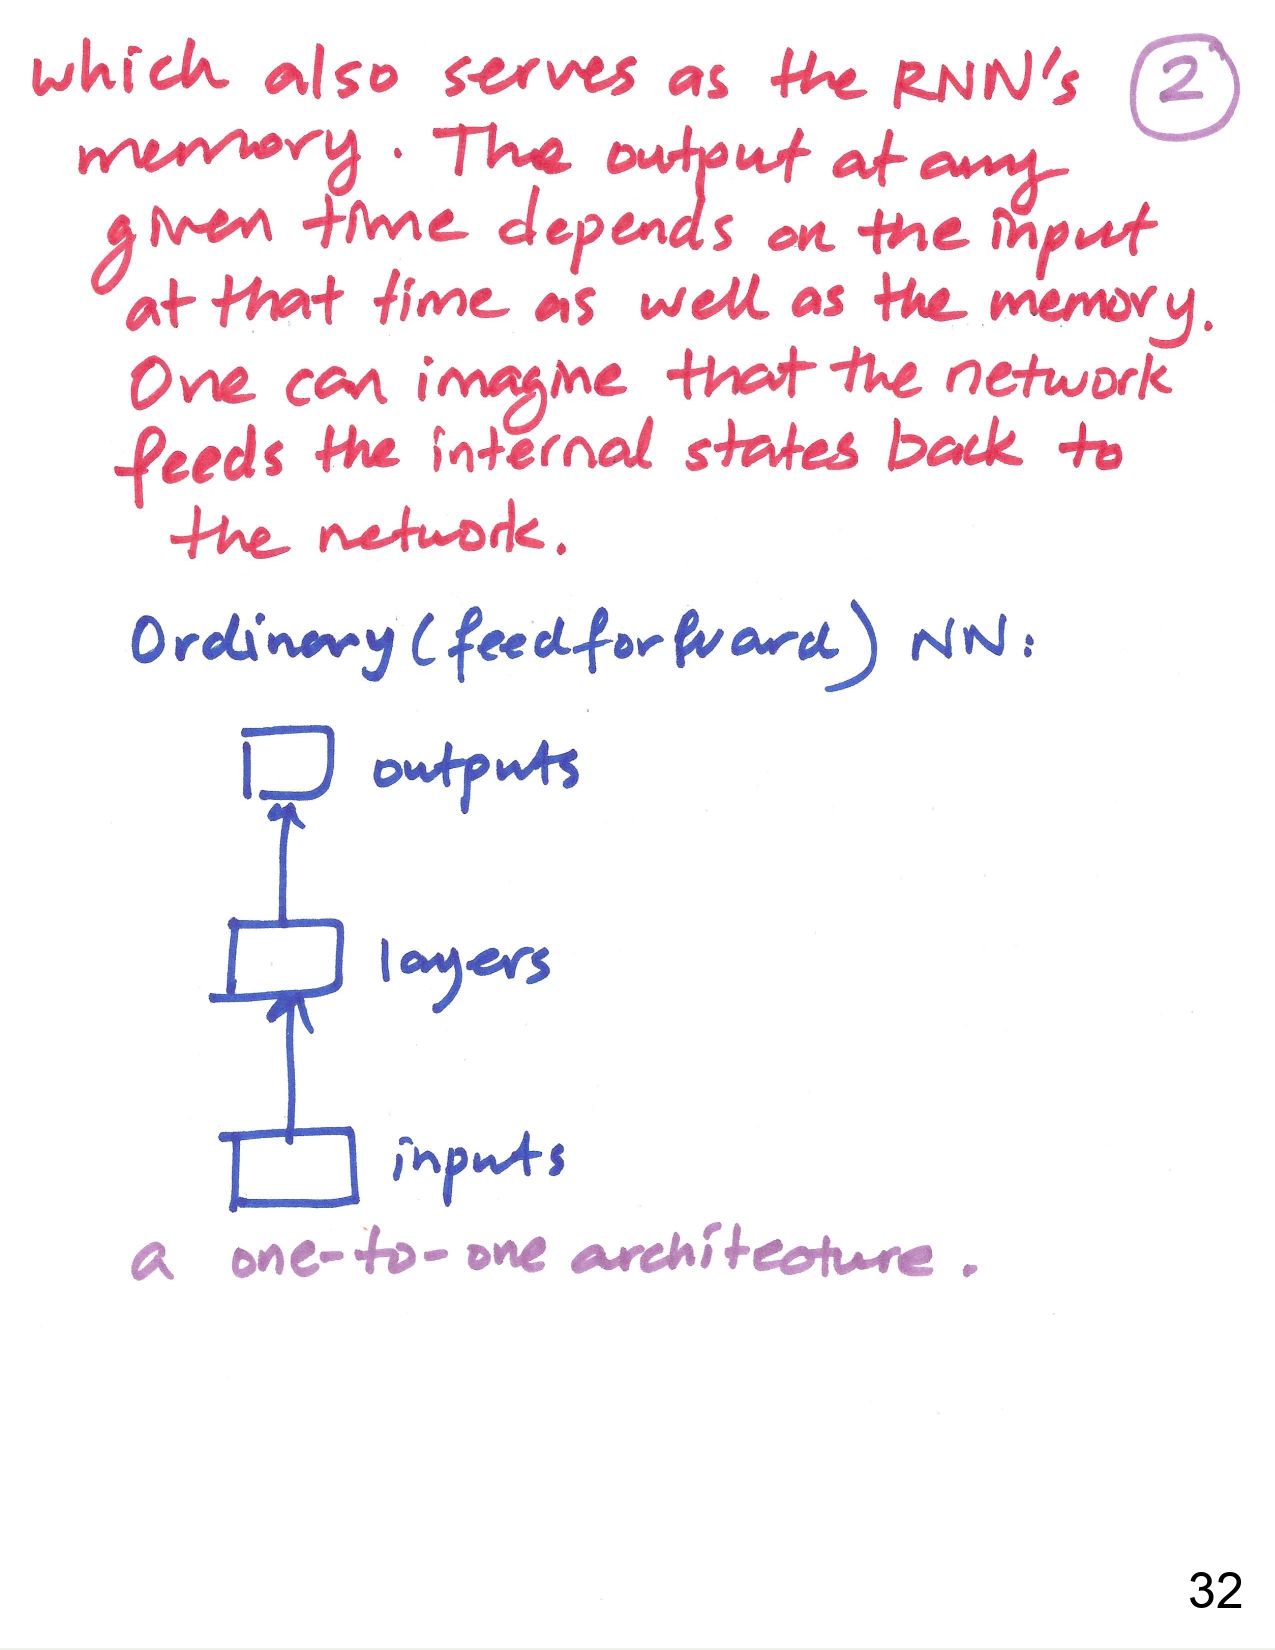 which also serves as the RNN's 2
memory. The output at any
given time depends on the input
at that time as well as the memory.
One can imagine that the network
feeds the internal states back to
the network.
Ordinary (feedforward) NN:
outputs
layers
inputs
a one-to-one architecture.
32